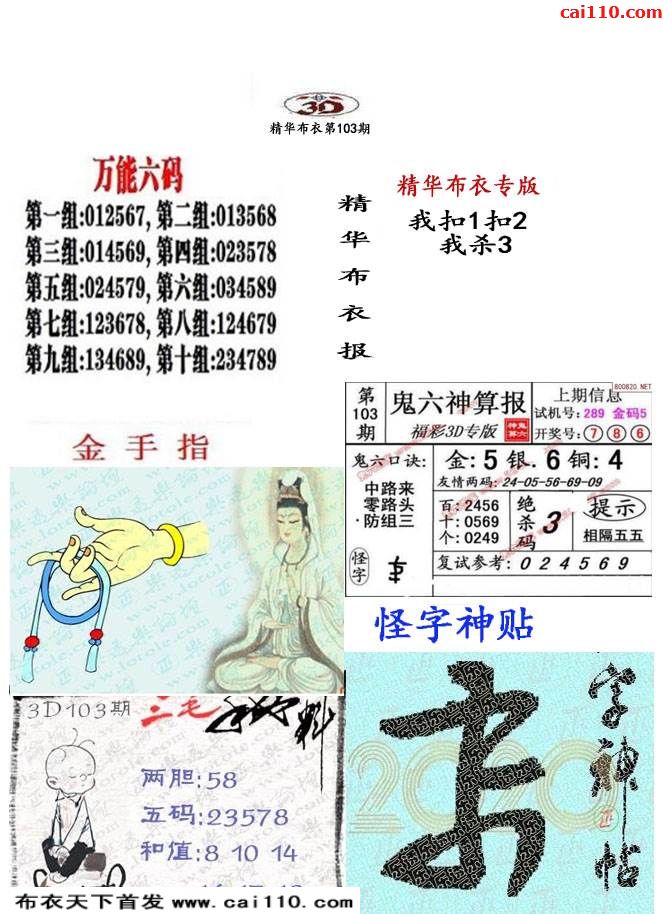 cai110.com
3D
精华布衣第103期
万能六码
第一组:012567, 第二组:013568
第三组:014569, 第四组:023578
第五组:024579, 第六组:034589
第七组:123678, 第八组:124679
第九组:134689, 第十组:234789
精华布衣报
精华布衣专版
我扣1扣2
我杀3
金手指
第103期
鬼六神算报
福彩3D专版
上期信息
800820.NET
试机号: 289 金码5
开奖号: 7 8 6
鬼六口诀:
中路来
零路头
防组三
金: 5 银. 6 铜: 4
友情两码: 24-05-56-69-09
百: 2456
十: 0569
个: 0249
绝杀码 3
提示
相隔五五
怪字
复试参考: 024569
怪字神贴
字神帖
2020
3D103期 三毛
两胆:58
五码:23578
和值:8 10 14
布衣天下首发 www.cai110.com